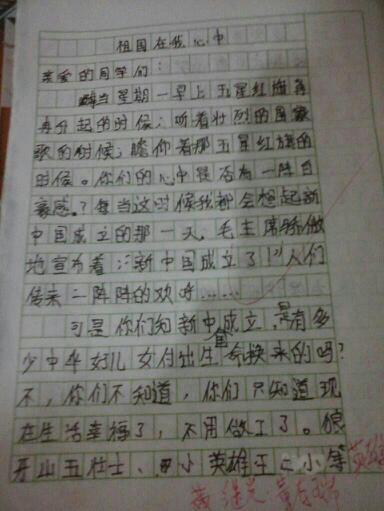 祖国在我心中
亲爱的同学们：
每当星期一早上五星红旗再
再升起的时候；听着壮烈的国
歌的时候；瞻仰着那五星红旗的
时候。你们的心中是否有一阵自
豪感。？每当这时候我都会想起新
中国成立的那一天，毛主席骄傲
地宣布着：新中国成立了！人们
传来一阵阵的欢呼……
可是你们知新中国成立，是有多
少中华好儿女付出生命换来的吗？
不，你们不知道，你们只知道现
在生活幸福了，不用做工了。狼
牙山五壮士、小英雄王二小等
英雄
黄继光、董存瑞